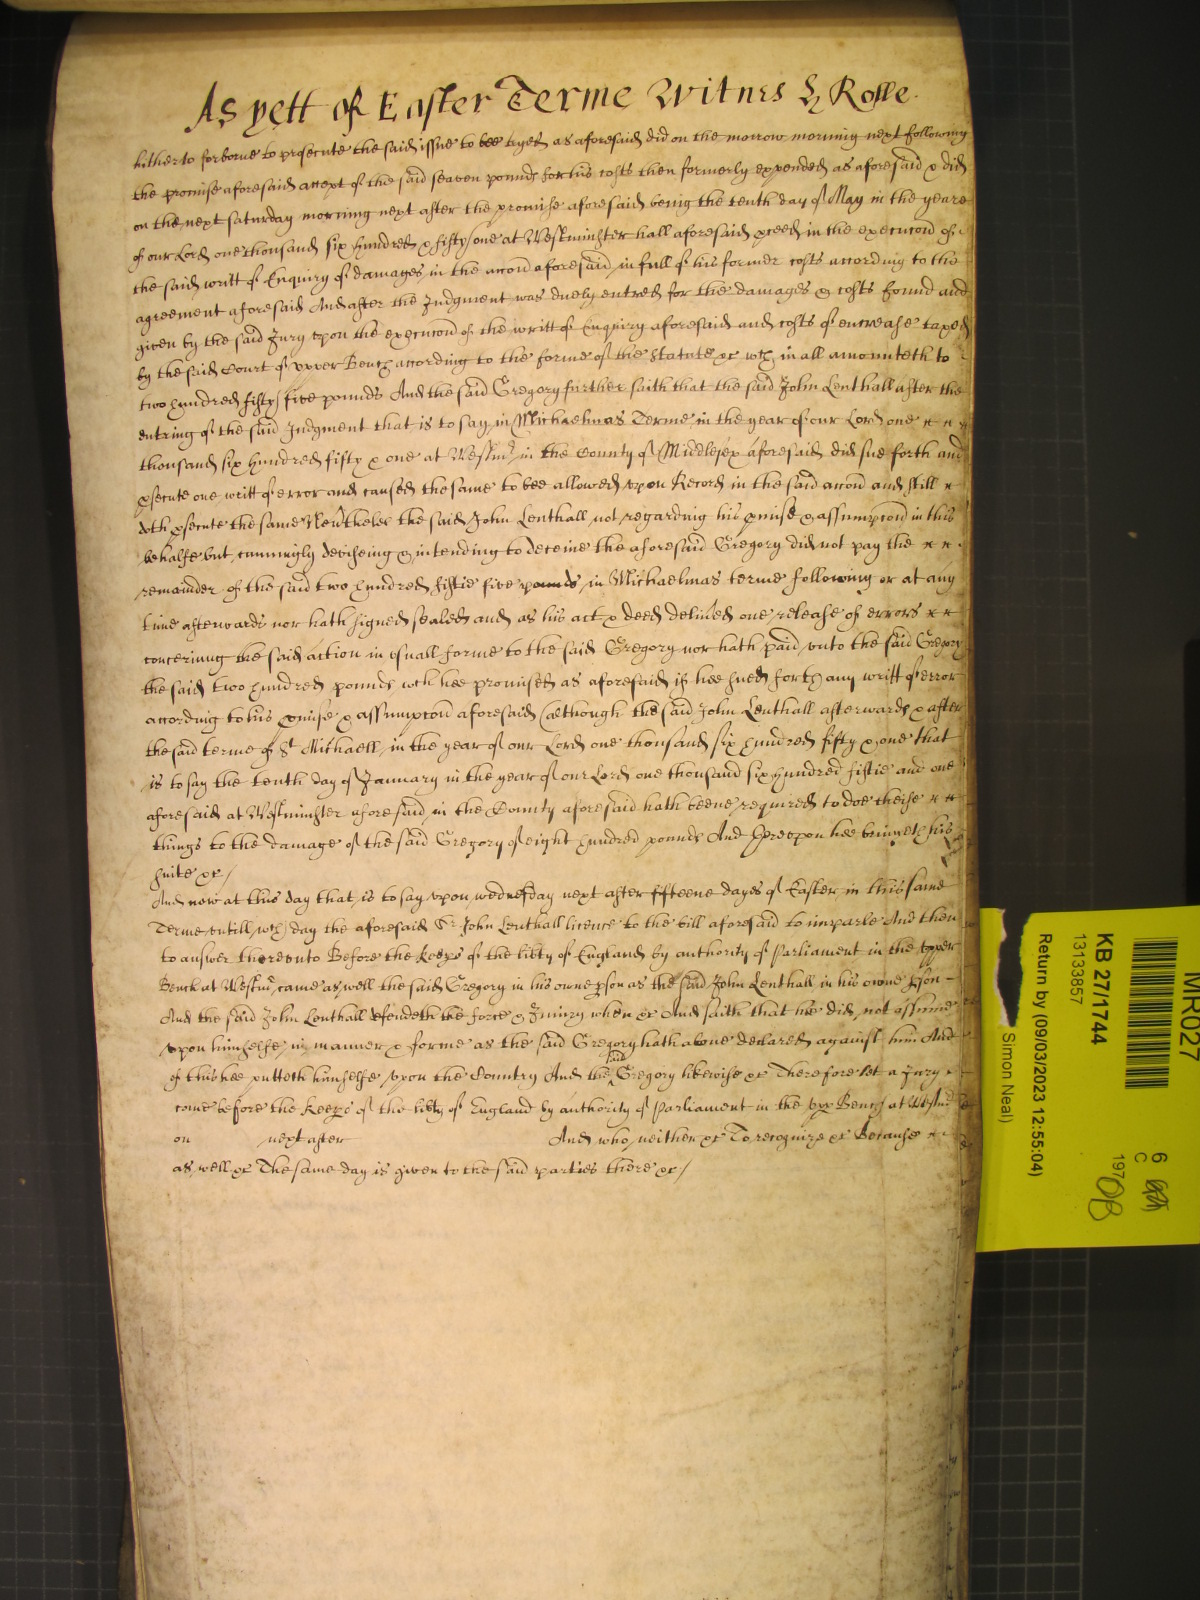 As yett of Easter Terme Witnes H Rolle.
hitherto forborne to prosecute the said issue to bee tryed as aforesaid did on the morrow morning next following
the promise aforesaid accept of the said seaven pounds for his costs then formerly expended as aforesaid & did
on the next saturday morning next after the promise aforesaid being the tenth day of May in the yeare
of our Lord one thousand six hundred & fifty one at Westminster hall aforesaid pceed in the execucon of
the said writt of Enquiry of damages in the accon aforesaid in full of his former costs according to the
agreement aforesaid And after the Judgment was duely entred for the damages & costs found and
given by the said Jury upon the execucon of the writt of Enquiry aforesaid and costs of encrease taxed
by the said Court of upper Bench according to the forme of the Statute &c wch in all amounteth to
two hundred fifty five pounds And the said Gregory further saith that the said John Lenthall after the
entring of the said Judgment that is to say in Michaelmas Terme in the year of our Lord one
thousand six hundred fifty & one at Westmr in the County of Middlesex aforesaid did sue forth and
psecute one writt of error and caused the same to bee allowed upon Record in the said accon and still
doth psecute the same Neverthelee the said John Lenthall not regarding his pmise & assumpcon in this
behalfe but cunningly deviseing & intending to deceive the aforesaid Gregory did not pay the
remainder of the said two hundred fiftie five pounds in Michaelmas terme following or at any
time afterwards nor hath signed sealed and as his act & deed delived one release of errors
concerning the said action in usuall forme to the said Gregory nor hath paid unto the said Gregory
the said two hundred pounds wch hee promised as aforesaid if hee sued forth any writt of error
according to his pmise & assumpcon aforesaid (although the said John Lenthall afterwards & after
the said terme of St Michaell in the year of our Lord one thousand six hundred fifty & one that
is to say the tenth day of January in the year of our Lord one thousand six hundred fiftie and one
aforesaid at Westminster aforesaid in the County aforesaid hath beene required to doe theise
things to the damage of the said Gregory of eight hundred pounds And thereupon hee bringeth his
suite &c/
And now at this day that is to say upon wednesday next after fifteene dayes of Easter in this same
Terme untill wch day the aforesaid Sr John Lenthall licence to the bill aforesaid to imparle And then
to answer thereunto Before the Keeps of the libty of England by authority of Parliament in the upper
Bench at Westmr came as well the said Gregory in his owne pson as the said John Lenthall in his owne pson
And the said John Lenthall defendeth the force & Iniury when &c And saith that he did not assume
upon himselfe in manner & forme as the said Gregory hath above declared against him And
of this hee putteth himselfe upon the Country And the said Gregory likewise &c Therefore let a Jury
come before the Keeps of the libty of England by authority of Parliament in the upp Bench at Westmr
on next after And who neither &c To recognize &c Because
as well &c The same day is given to the said parties there &c/
MR027
KB 27/1744
13133857
Return by (09/03/2023 12:55:04)
Simon Neal)
6
C
197